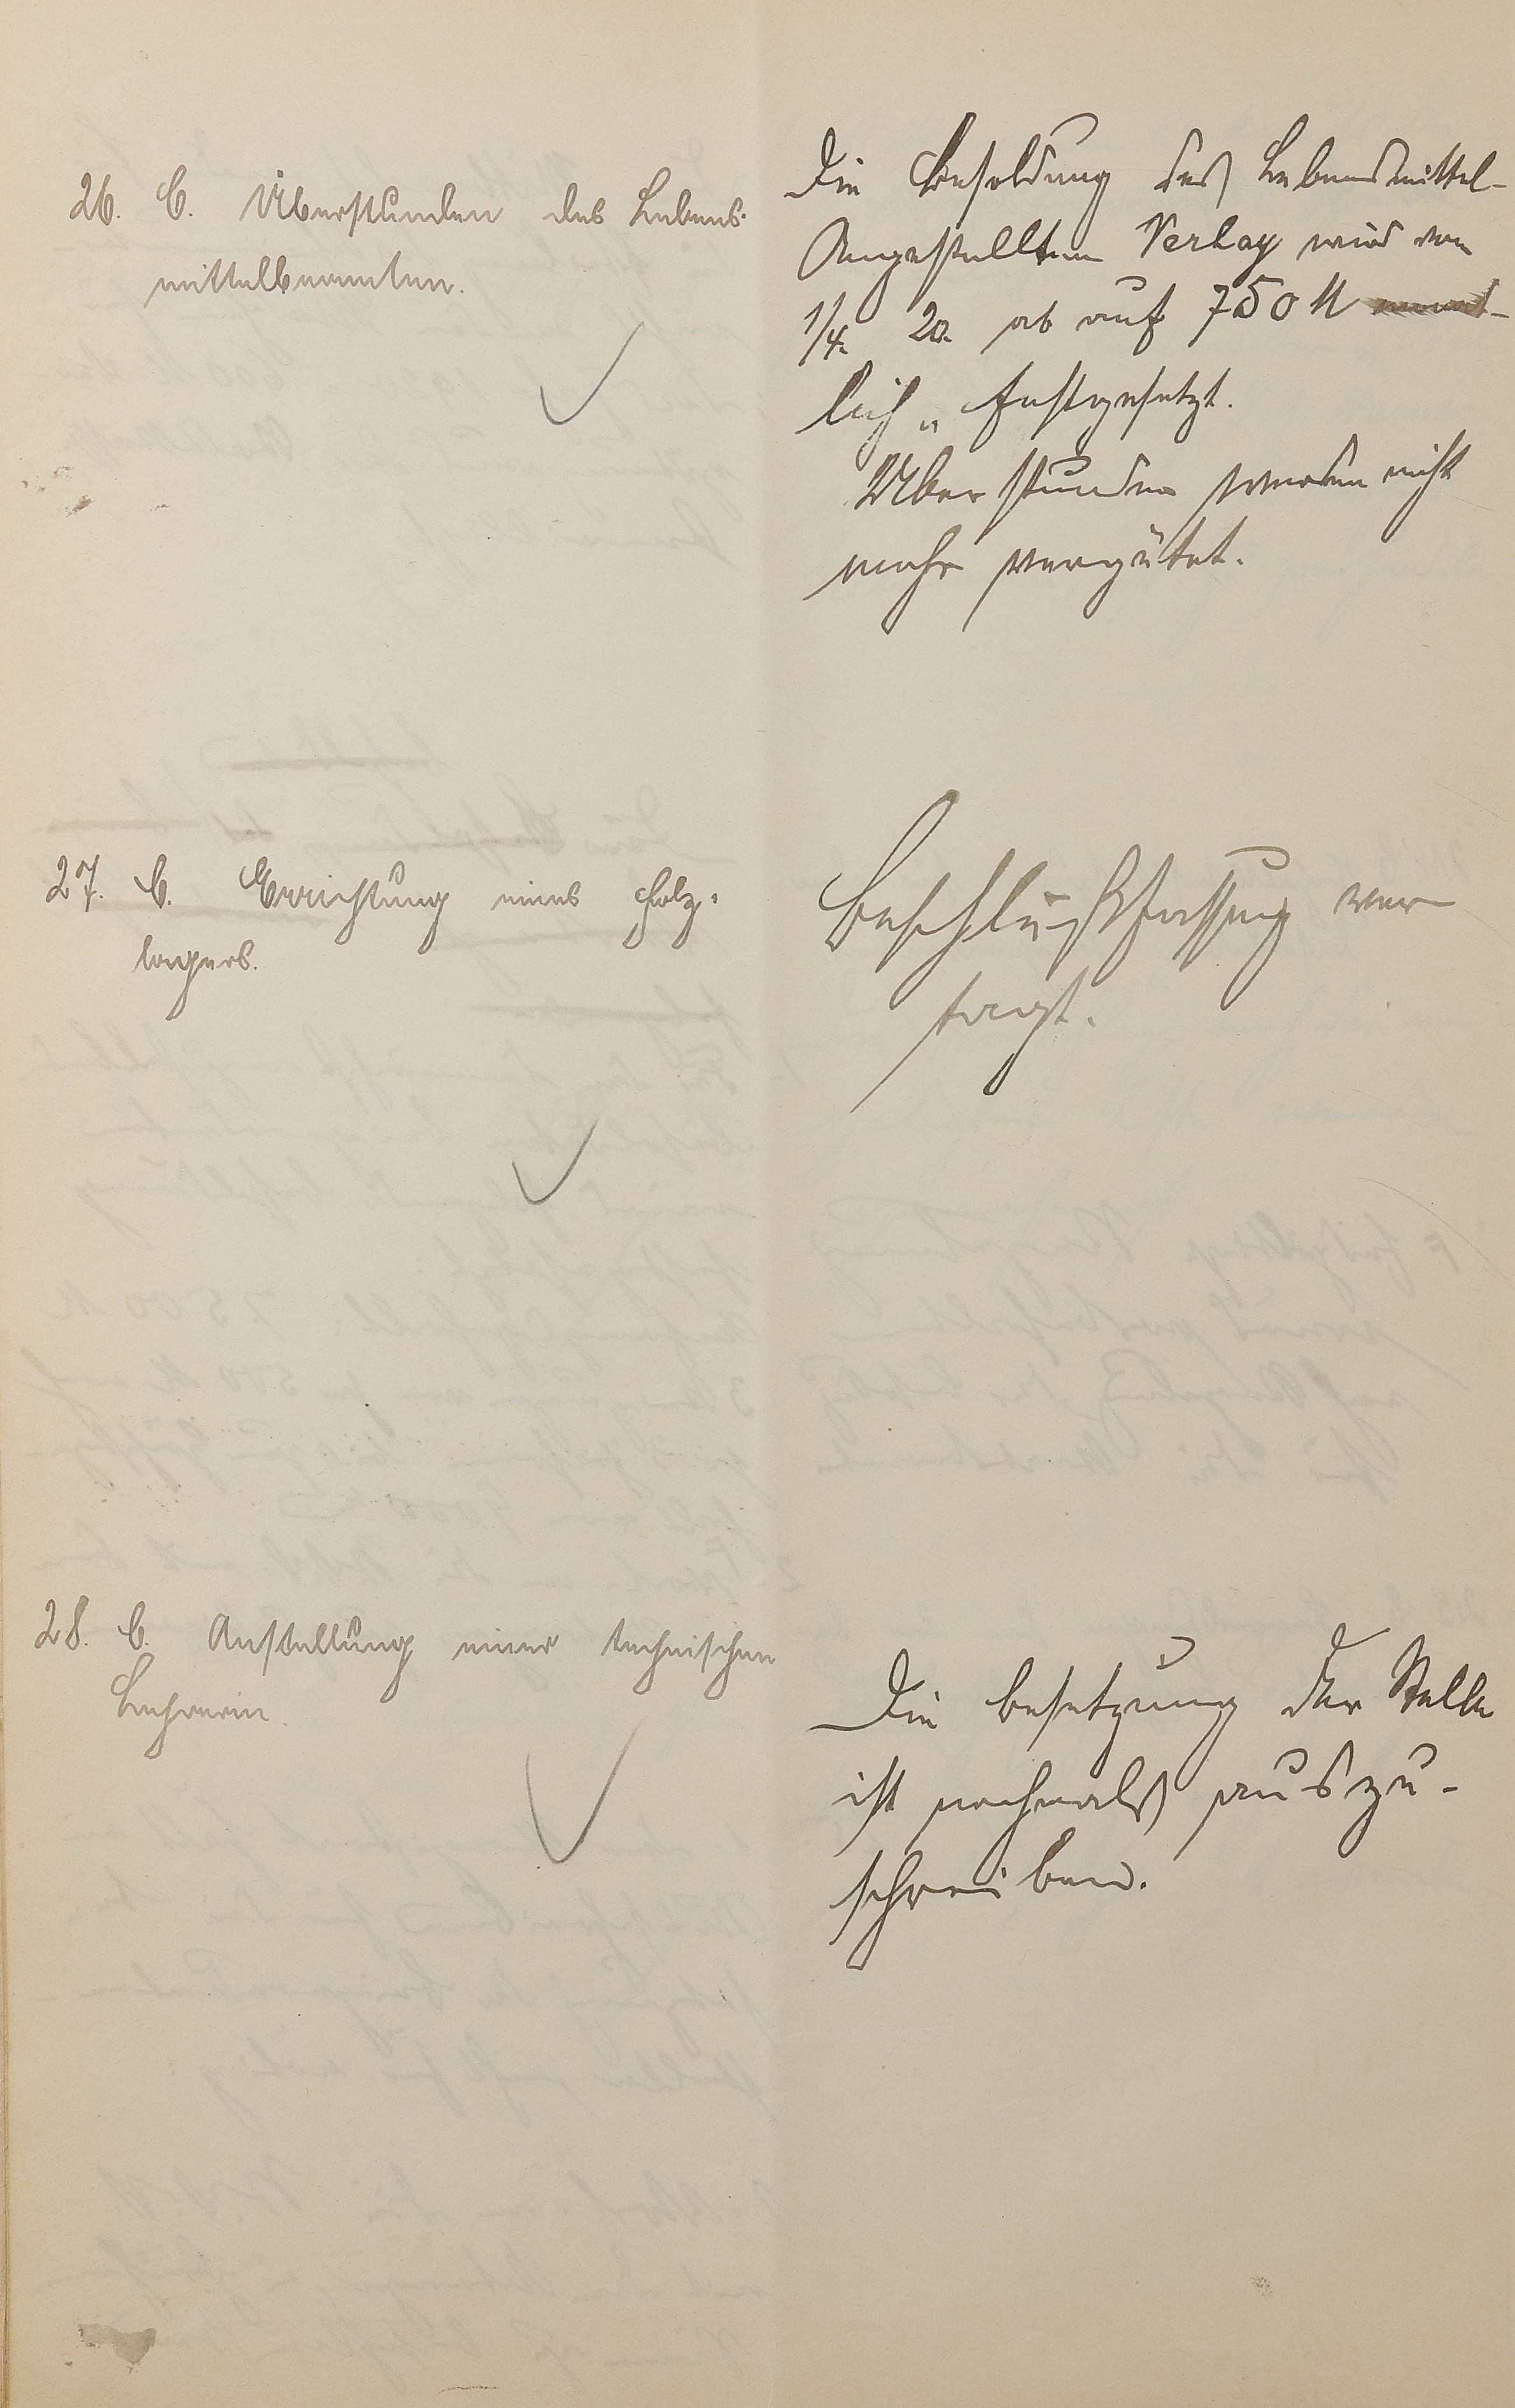 26. C. Überstunden des Lebens-
mittelbeamten.
Die Besoldung des Lebensmittel-
Angestellten Verlay wird vom
1/4. 20. ab auf 750 M monat-
lich festgesetzt.
Überstunden werden nicht
mehr vergütet.
27. C. Errichtung eines Holz-
lagers.
Beschlußfassung ver
tagt.
28. C. Anstellung einer technischen
Lehrerin.
Die Besetzung der Stelle
ist nochmals auszu-
schreiben.